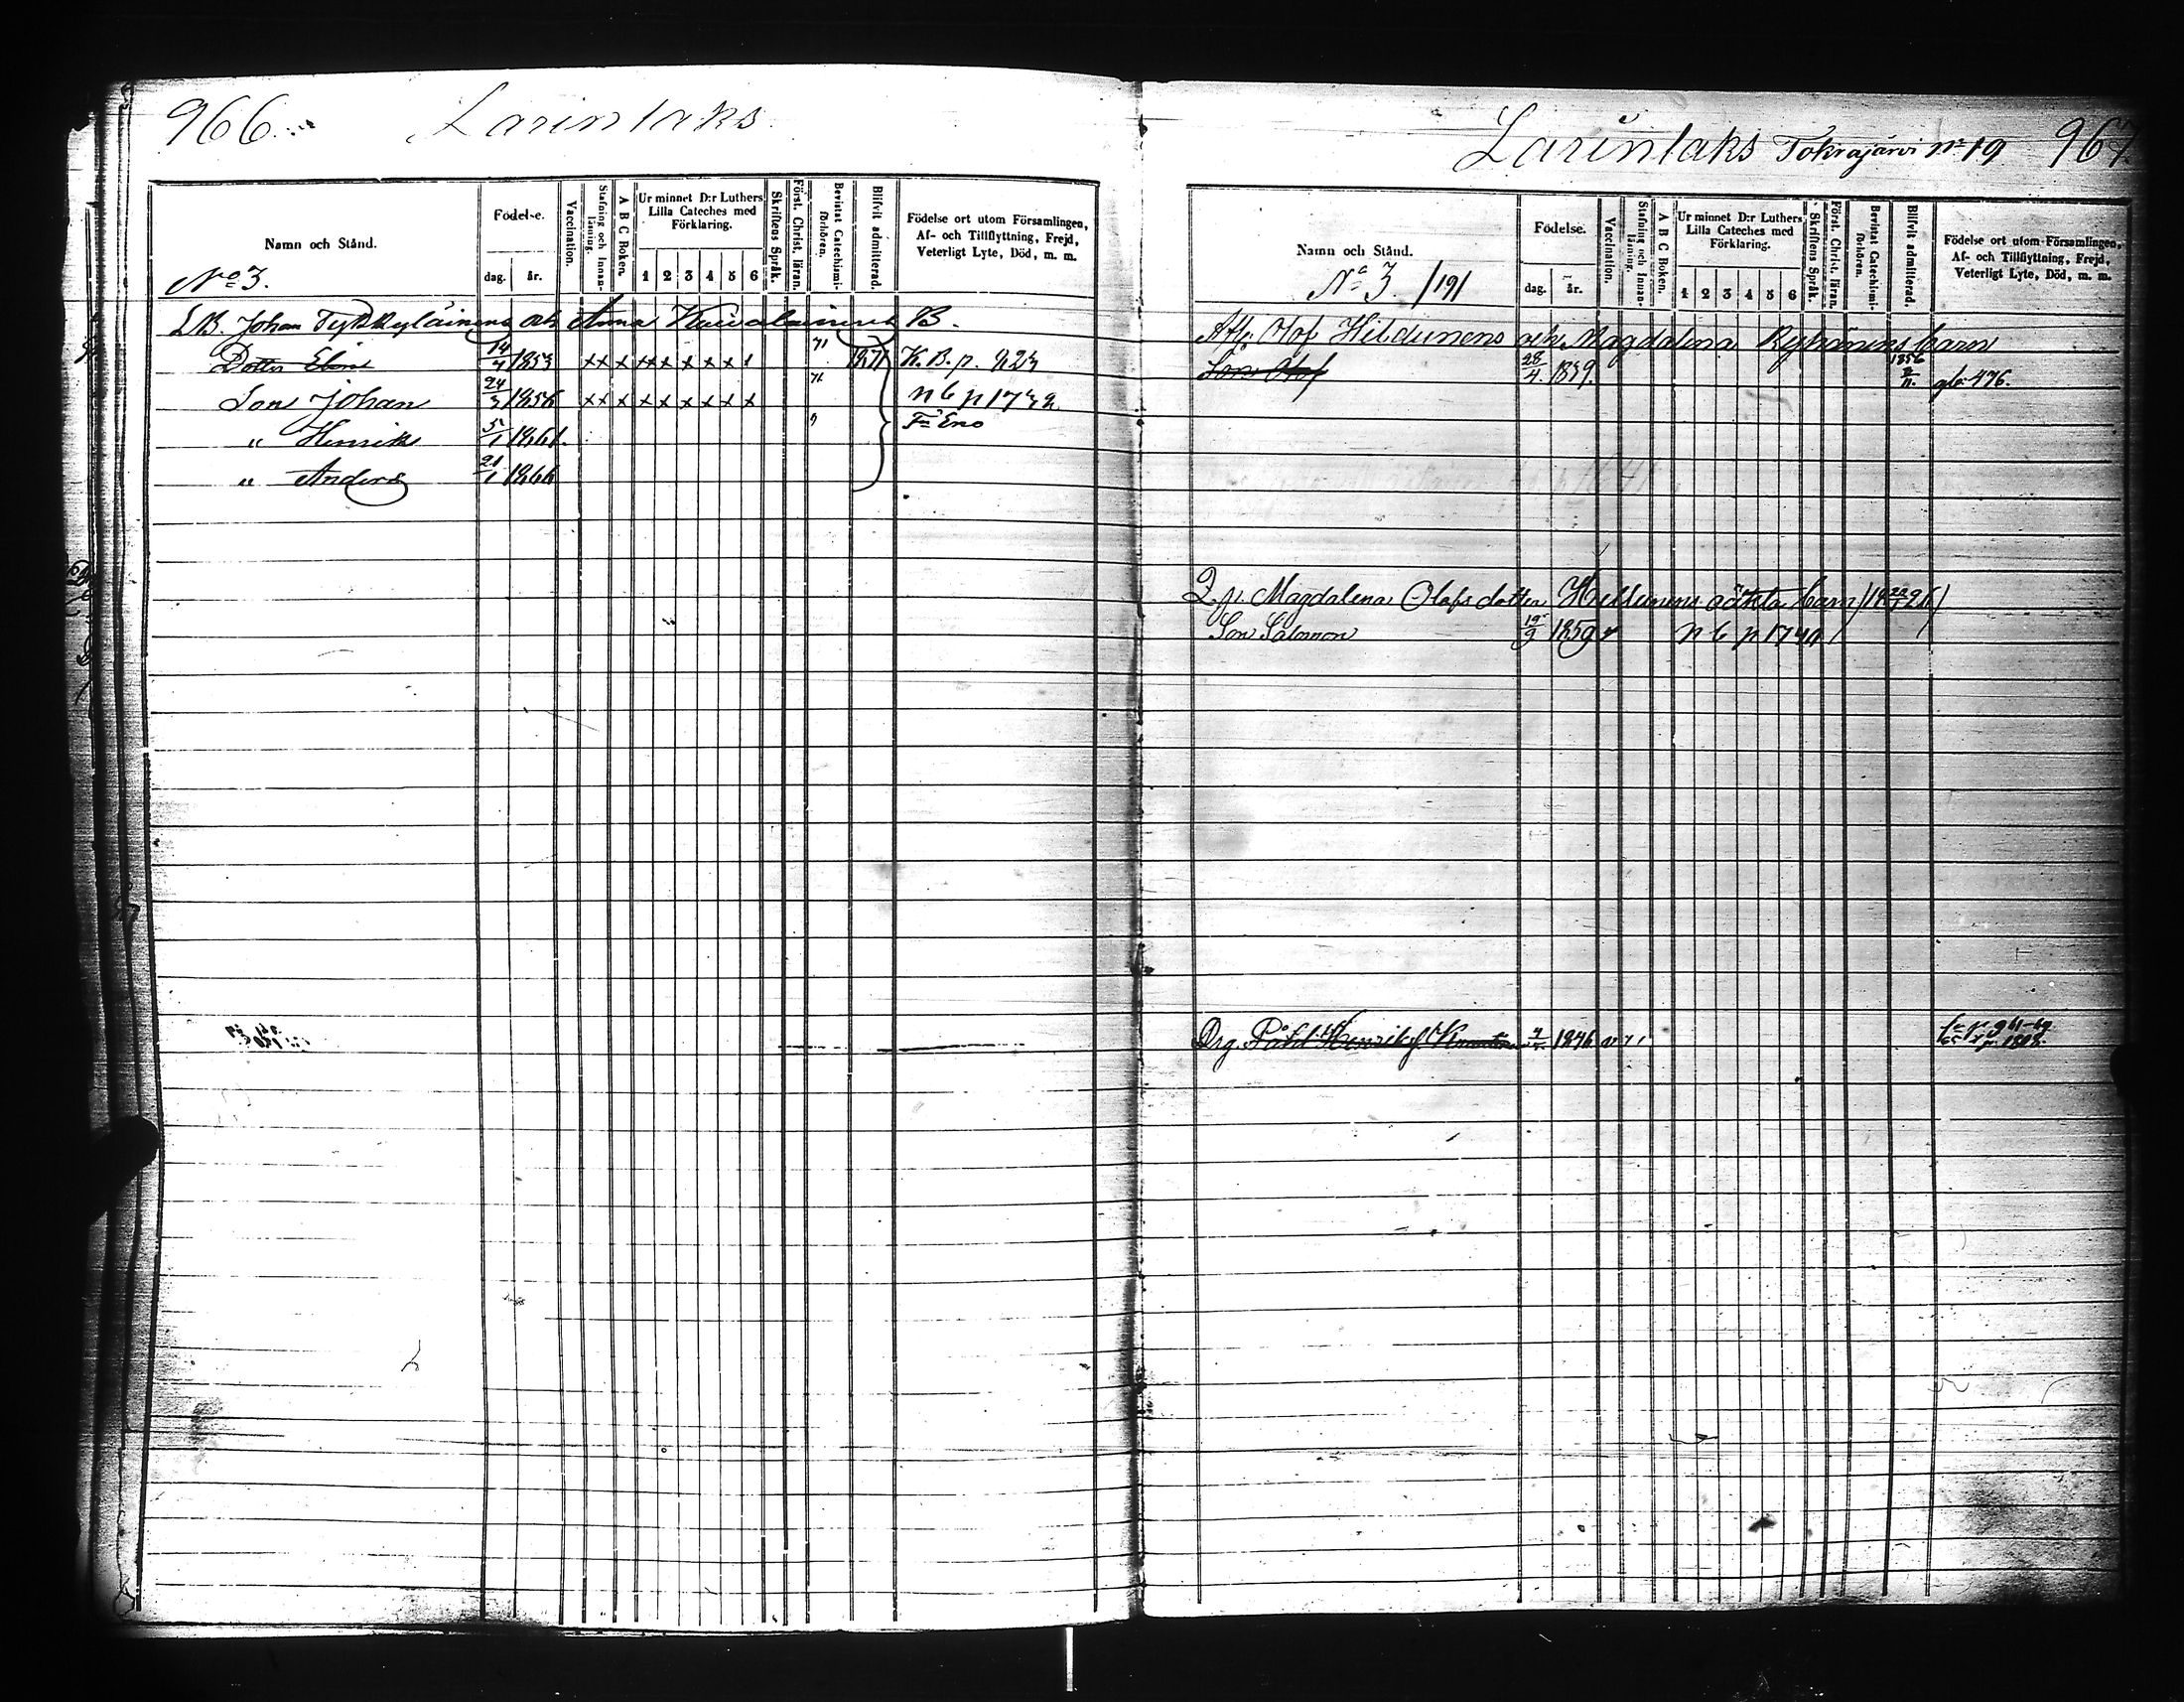 966.
Larinlaks.
Namn och Stånd.
No 3.
Födelse.
dag. år.
Vaccination.
Stafning och Innan-läsning.
A B C Boken.
Ur minnet D:r Luthers Lilla Cateches med Förklaring.
1 2 3 4 5 6
Skriftens Språk.
Först. Christ. läran.
Bevistat Catechismi-förhören.
Blifvit admitterad.
Födelse ort utom Församlingen, Af- och Tillflyttning, Frejd, Veterligt Lyte, Död, m. m.
Johan Tykkyläinens och Anna B.
Dotter 14/4 1853 x x x x x x x x x 1871 K. B. p.
Son Johan 24/3 1856 x x x x x x x x x n 6 p
" Henrik 5/1 1861. Eno
" Anders 21/1 1866
Larinlaks Tohrajärvi No 19 967.
Namn och Stånd.
No 3. /19/
Födelse.
dag. år.
Vaccination.
Stafning och Innan-läsning.
A B C Boken.
Ur minnet D:r Luthers Lilla Cateches med Förklaring.
1 2 3 4 5 6
Skriftens Språk.
Först. Christ. läran.
Bevistat Catechismi-förhören.
Blifvit admitterad.
Födelse ort utom Församlingen, Af- och Tillflyttning, Frejd, Veterligt Lyte, Död, m. m.
Olof Hildunens och Magdalena Ryhänens barn
Son Olof 28/4. 1839. 1856 476.
Magdalena Olofsdotter oäkta barn
Son Salomon 19/9 1859 n 6 p
Drg. Påhl Henriksf. 1846